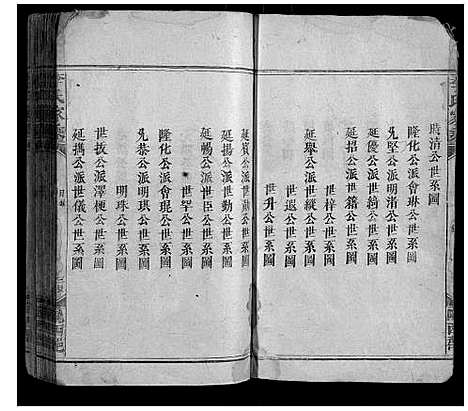 時清公世系圖
隆化公派會琳公世系圖
先堅公派明渚公世系圖
延優公派世綺公世系圖
延招公派世籍公世系圖
世梓公世系圖
延舉公派世縱公世系圖
世遐公世系圖
世升公世系圖
延賓公派世勳公世系圖
延揚公派世勤公世系圖
延暢公派世臣公世系圖
世單公世系圖
隆化公派會琨公世系圖
先恭公派明琪公世系圖
明珠公世系圖
世拔公派澤梗公世系圖
延擕公派世儀公世系圖